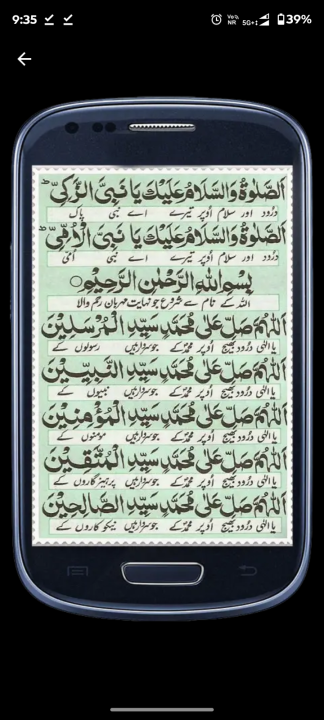 9:35
Vo) NR
5G+
39%
اَلصَّلٰوةُ وَالسَّلَامُ عَلَيْكَ يَا نَبِيَّ الزَّكِيِّ ط
درُود اور سلام اُوپر تیرے اے نبی پاک
اَلصَّلٰوةُ وَالسَّلَامُ عَلَيْكَ يَا نَبِيَّ الْاُمِّيِّ ط
درُود اور سلام اُوپر تیرے اے نبی اُمی
بِسْمِ اللهِ الرَّحْمٰنِ الرَّحِيْمِ ○
اللہ کے نام سے شروع جو نہایت مہربان رحم والا
اَللّٰهُمَّ صَلِّ عَلٰى مُحَمَّدٍ سَيِّدِ الْمُرْسَلِيْنَ
یا الٰہی درُود بھیج اُوپر محمّد کے جو سردار ہیں رسولوں کے
اَللّٰهُمَّ صَلِّ عَلٰى مُحَمَّدٍ سَيِّدِ النَّبِيِّيْنَ
یا الٰہی درُود بھیج اُوپر محمّد کے جو سردار ہیں نبیوں کے
اَللّٰهُمَّ صَلِّ عَلٰى مُحَمَّدٍ سَيِّدِ الْمُؤْمِنِيْنَ
یا الٰہی درُود بھیج اُوپر محمّد کے جو سردار ہیں مومنوں کے
اَللّٰهُمَّ صَلِّ عَلٰى مُحَمَّدٍ سَيِّدِ الْمُتَّقِيْنَ
یا الٰہی درُود بھیج اُوپر محمّد کے جو سردار ہیں پرہیزگاروں کے
اَللّٰهُمَّ صَلِّ عَلٰى مُحَمَّدٍ سَيِّدِ الصَّالِحِيْنَ
یا الٰہی درُود بھیج اُوپر محمّد کے جو سردار ہیں نیکوکاروں کے